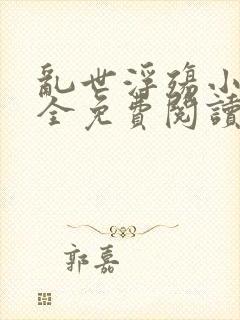 亂世浮殤小
全免費閱讀
郭嘉